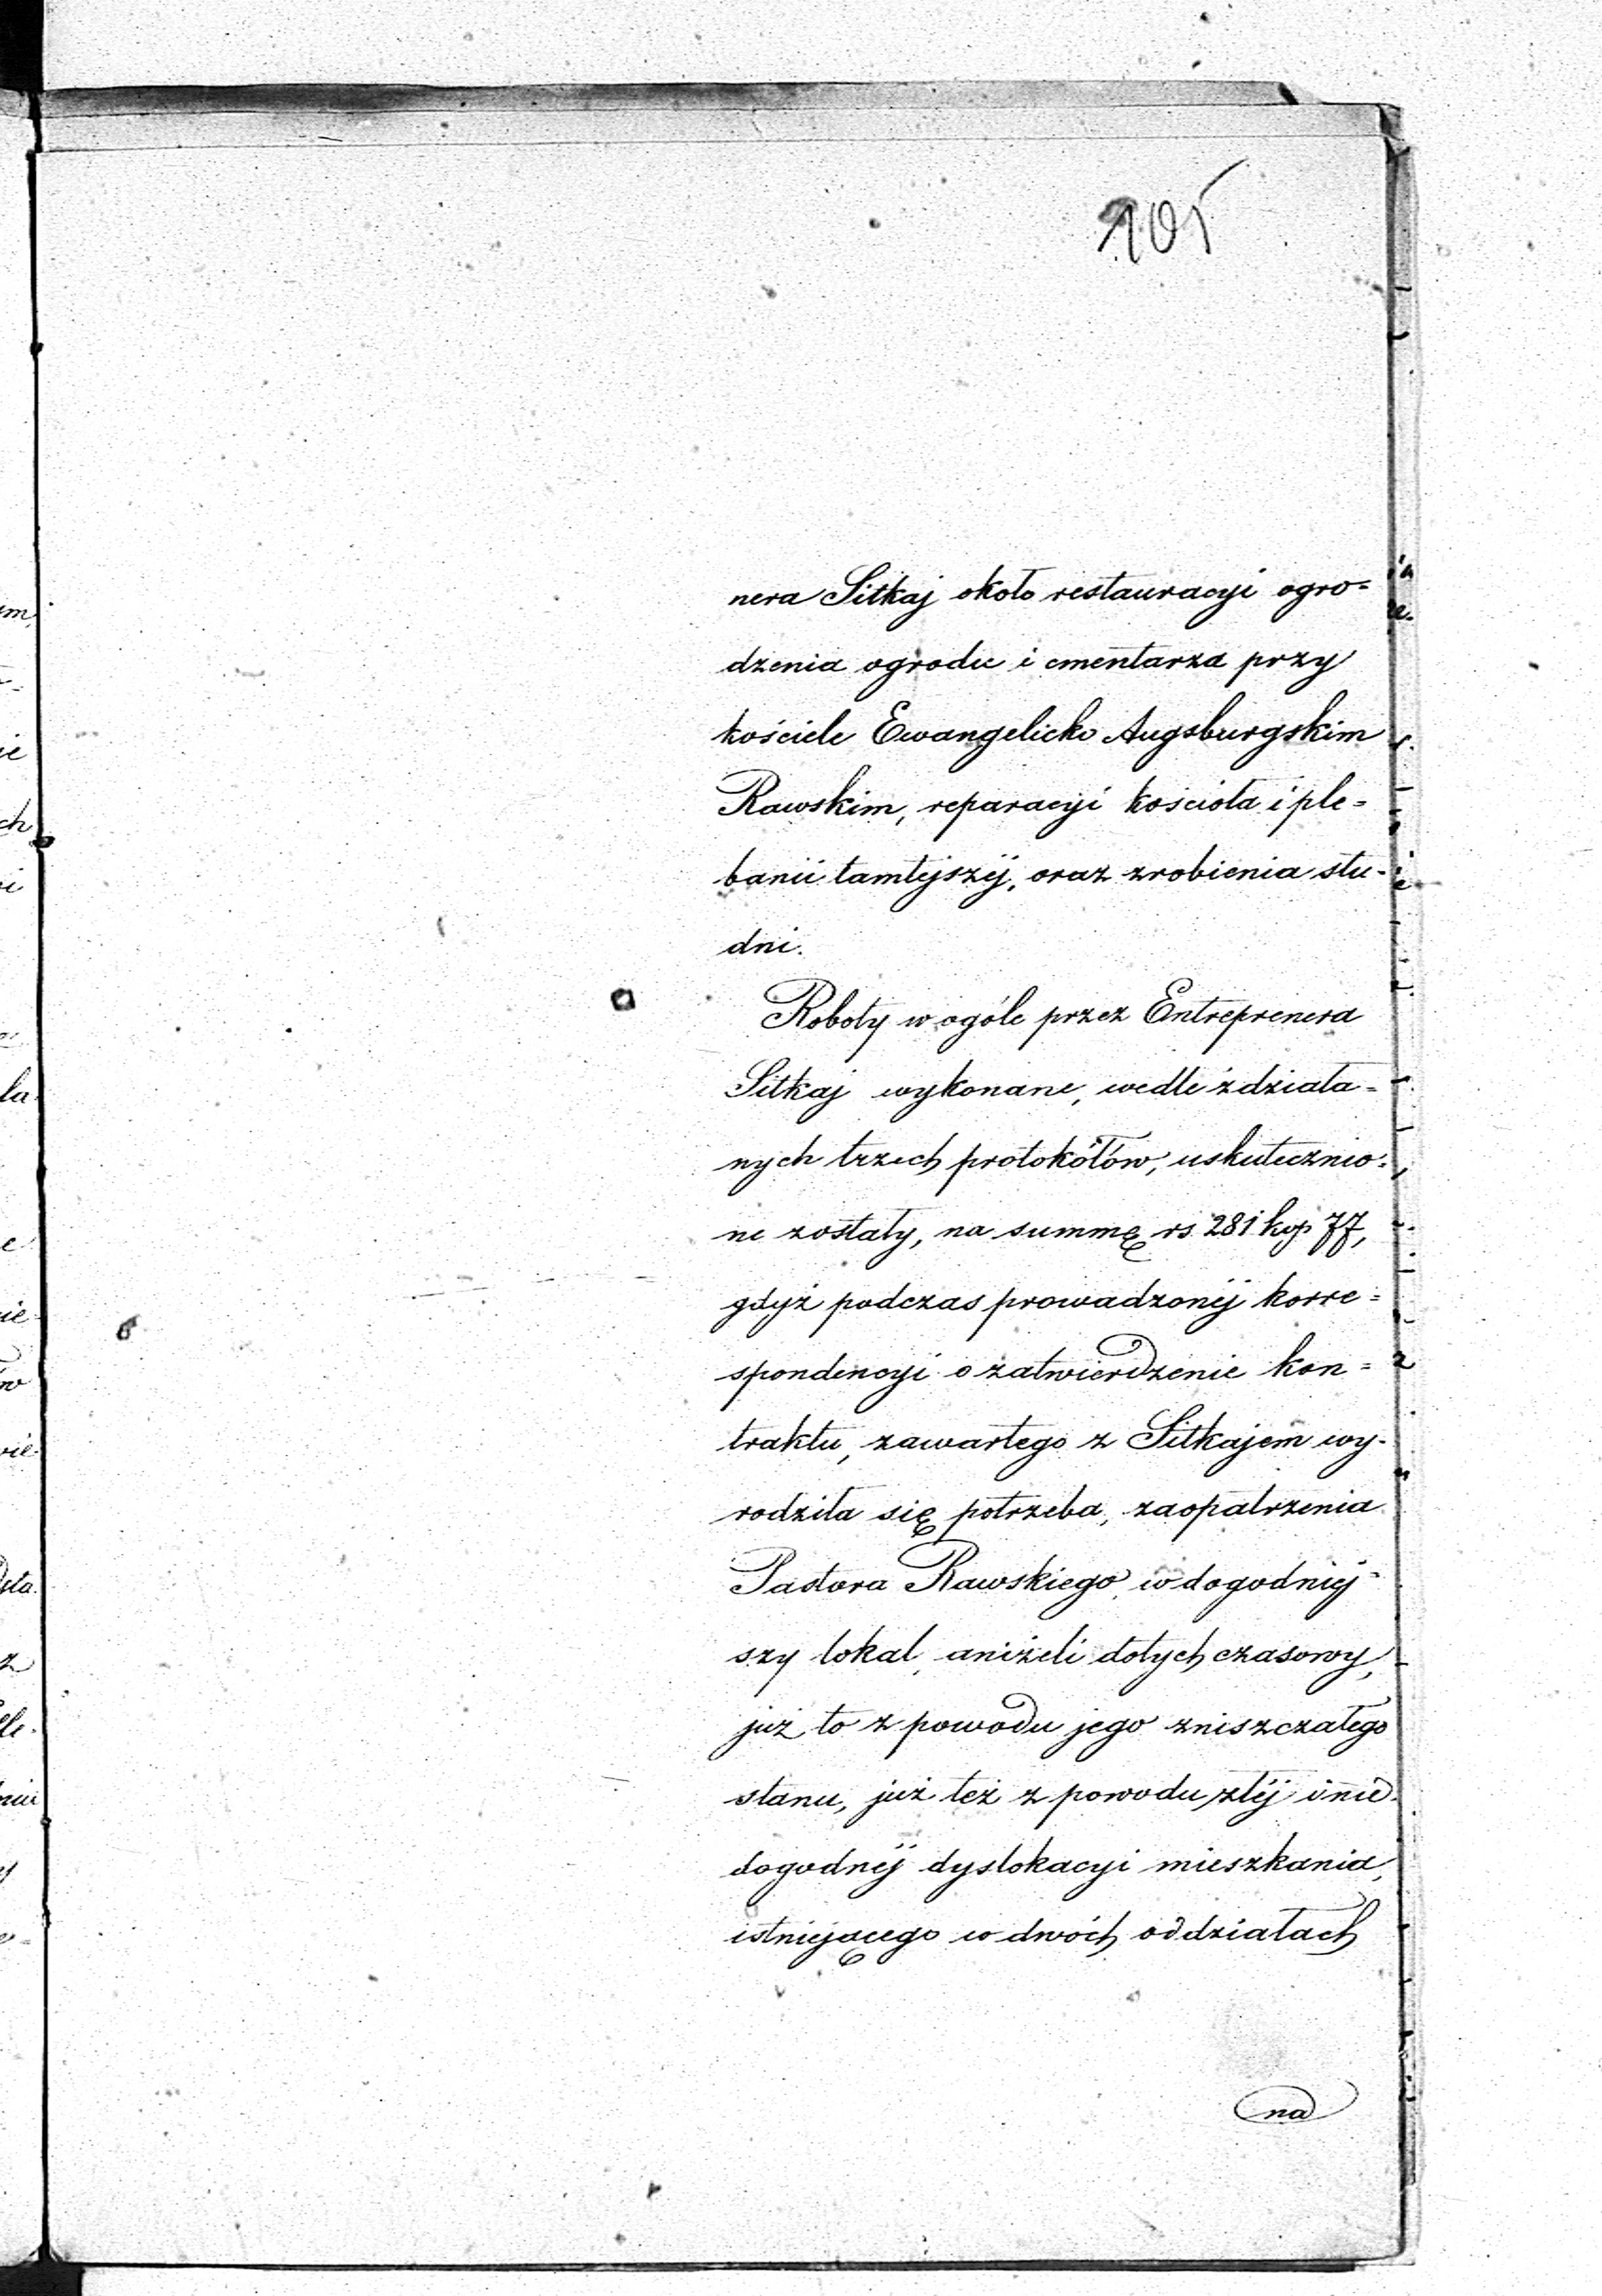 105
nera Sitkaj około restauracyi ogro=
dzenia ogrodu i cmentarza przy
kościele Ewangelicko Augsburgskim
Rawskim, reparacyi kościoła i ple=
banii tamtejszéj, oraz zrobienia stu-
dni.
Roboty w ogóle przez Entreprenera
Sitkaj wykonane, wedle zdziała=
nych trzech protokółów, uskutecznio=
ne zostały, na summę rs 281 kop 77,
gdyż podczas prowadzonéj korre=
spondencyi o zatwierdzenie kon=
traktu, zawartego z Sitkajem wy-
rodziła się potrzeba, zaopatrzenia
Pastora Rawskiego, w dogodniéj=
szy lokal, aniżeli dotychczasowy,
już to z powodu jego zniszczałego
stanu, już też z powodu złéj i nie-
dogodnéj dyslokacyi mieszkania,
istniejącego w dwóch oddziałach
na